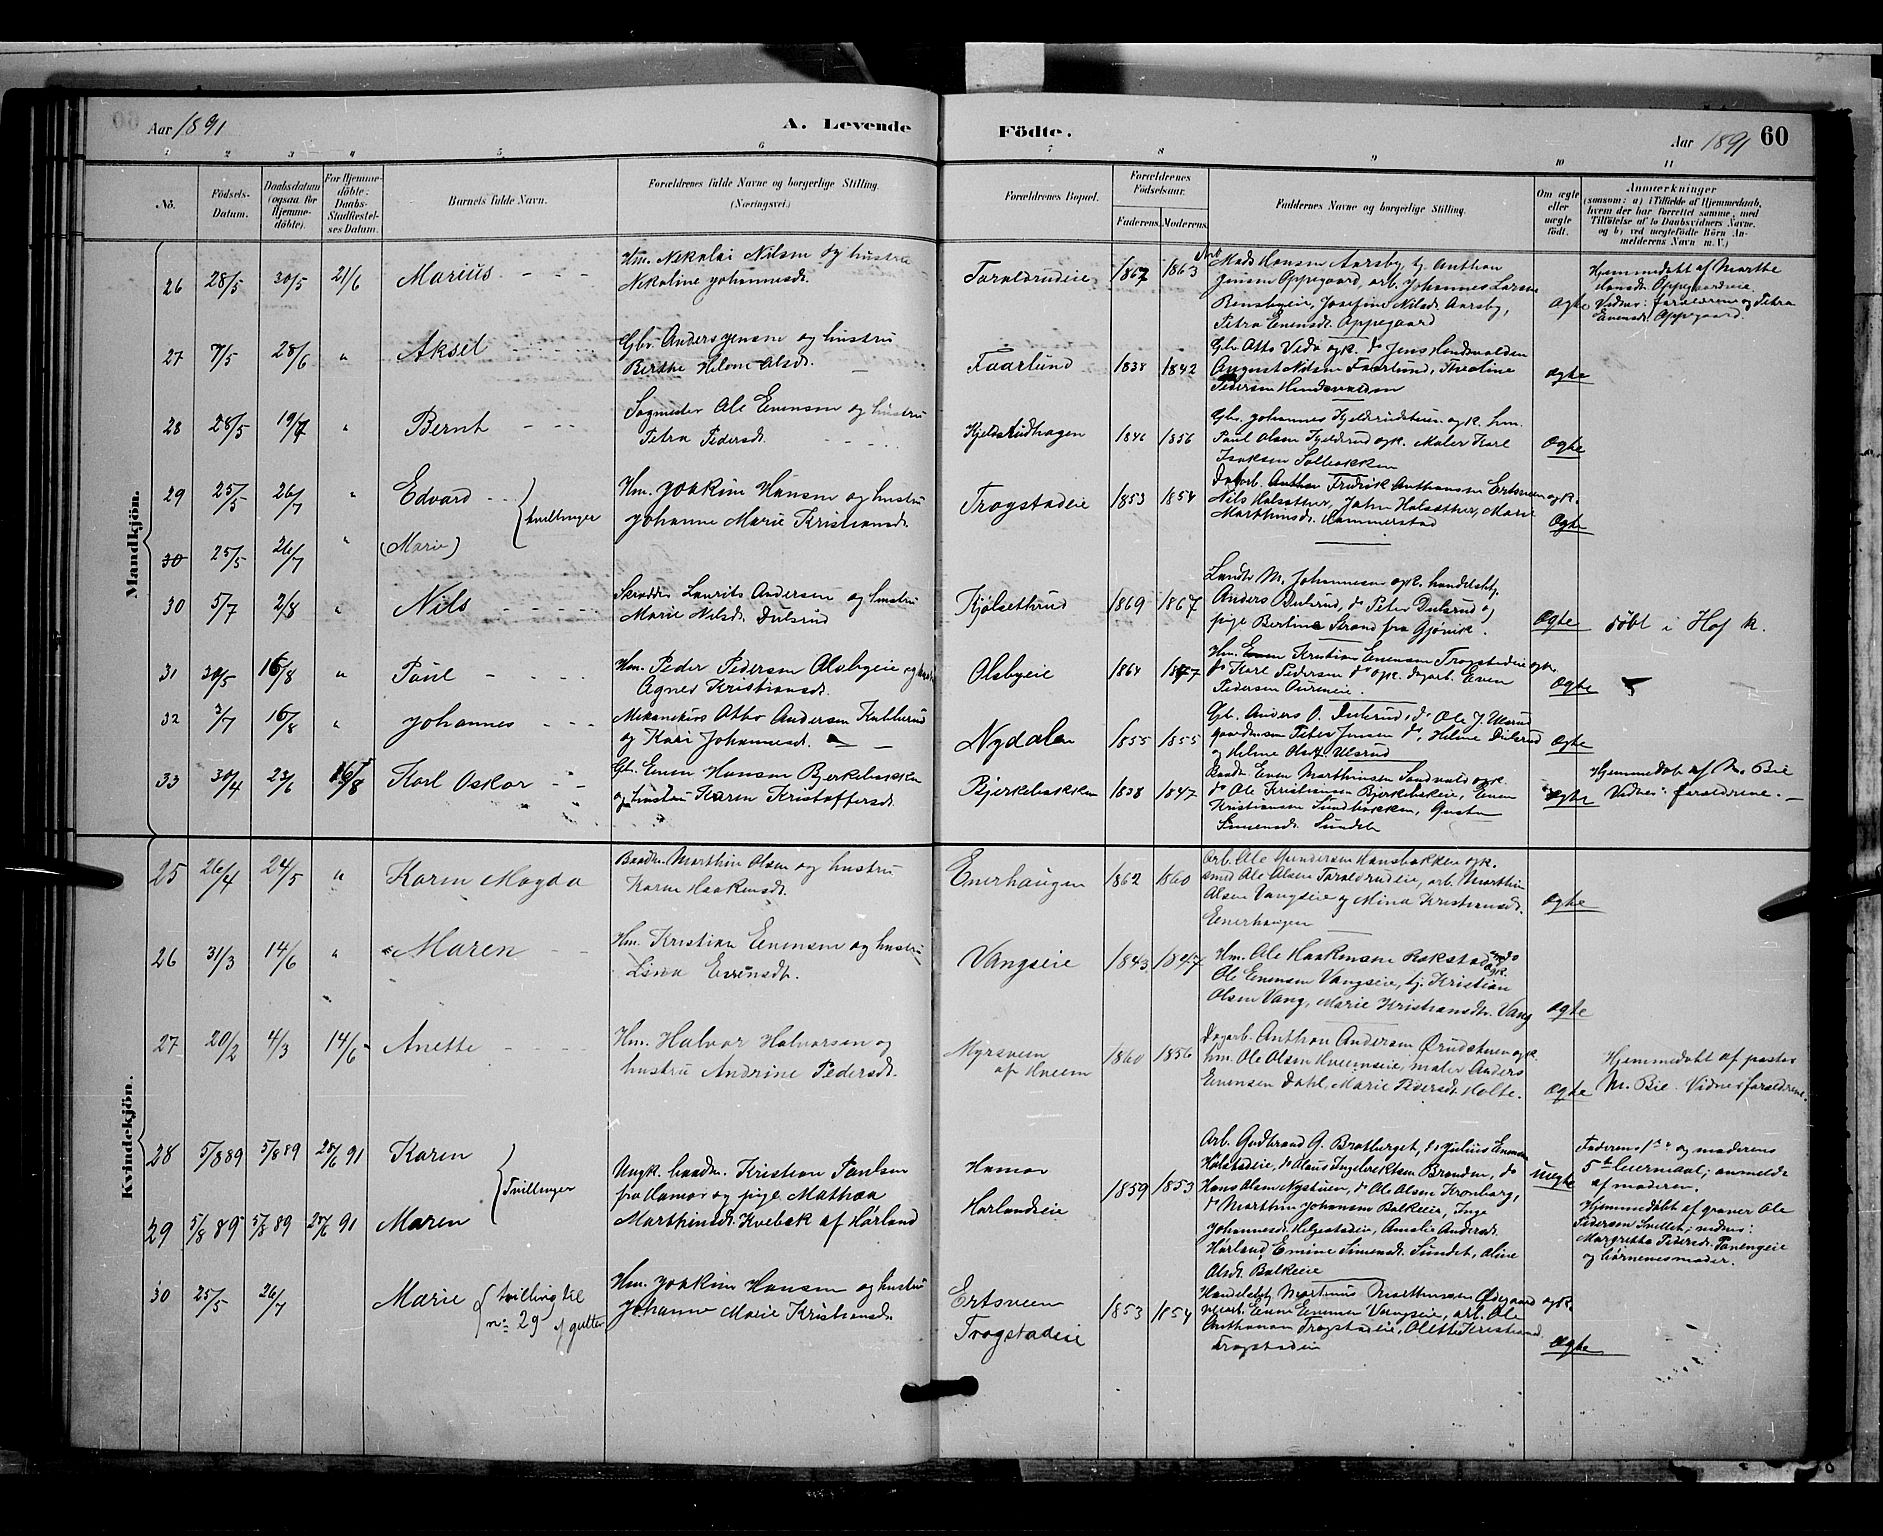 Aar 1891
A. Levende
Födte.
Aar 1891
60
1 2 3 4 5 6 7 8 9 10 11
No.
Födsels-
Datum.
Daabsdatum
(ogsaa for
Hjemme-
döbte).
For Hjemme-
döbte:
Daabs-
Stadfæstel-
ses Datum.
Barnets fulde Navn.
Forældrenes fulde Navne og borgerlige Stilling.
(Næringsvei.)
Forældrenes Bopæl.
Forældrenes
Födselsaar.
Faderens. Moderens.
Faddernes Navne og borgerlige Stilling.
Om ægte
eller
uægte
födt.
Anmærkninger
(saasom: a) i Tilfælde af Hjemmedaab,
hvem der har forrettet samme, med
Tilföielse af to Daabsvidners Navne,
og b) ved uægtefödte Börn An-
melderens Navn m. V.)
Mandkjön.
26 28/5 30/5 21/6 Marius
Hm. Nikolai Nilsen og hustru
Nikoline Johannesdr.
Taralrudeie 1867 1863
Mads Hansen Aarsby, tj. Anthon
Jensen Oppegaard, arb. Johannes Larsen
Rensbyeie, Josefine Nilsdr. Aarsby,
Petra Evensdr. Oppegaard
ægte
Hjemmedøbt af Marthe
Hansdr. Oppegaardeie.
Vidner: forældrene og Petra
Evensdr. Oppegaard.
27 7/5 28/6 " Aksel
Gbr. Anders Jensen og hustru
Berthe Helene Olsdr.
Faarlund 1838 1842
Gbr. Otto Vida ogk. do Jens Hindsvalden
August Nilsen Faarlund, Theoline
Pedersen Hindsvalden
ægte
28 28/5 19/7 " Bernt
Sagmester Ole Evensen og hustru
Petra Pedersdr.
Kjeldsrudhagen 1846 1856
Gbr. Johannes Kjeldsrudstuen ogk. hm.
Paul Olsen Kjeldsrud ogk. Maler Karl
Isaksen Solbakken
ægte
29 25/5 26/7 " Edvard
tvillinger
Hm. Joakim Hansen og hustru
Johanne Marie Kristiansdr.
Trogstadeie 1853 1854
Dagarb. Anthon Fredrik Anthonsen Ertsveen ogk.
Nils Holsæther, John Holsæther, Marie
Marthinsdr. Hammerstad
ægte
30 25/5 26/7 " (Marie)
30 5/7 2/8 " Nils
Skrædder Laurits Andersen og hustru
Marie Nilsdr. Dulsrud
Kjølsethrud 1869 1867
Landh. M. Johannesen ogk. handelsbtj.
Anders Dulsrud, do Peter Dulsrud og
pige Bertine Strand fra Gjøvik.
ægte
døbt i Hof k.
31 30/5 16/8 " Paul
Hm. Peder Pedersen Olsbyeie og hustru
Agnes Kristiansdr.
Olsbyeie 1864 1877
Hm. Kristian Evensen Trogstadeie ogk.
do Karl Pedersen do ogk. dagarb. Even
Pedersen Aureneie.
ægte
32 3/7 16/8 " Johannes
Mekanikus Otto Andersen Kullerud
og Kari Johannesdr.
Nydalen 1855 1855
Gb. Anders O. Dulsrud, do Ole J. Ulsrud
gaardmand Peter Jensen do, Helene Dulsrud
og Helene Olsdr. Ulsrud
ægte
33 30/4 23/6 16/8 Karl Oskar
Gb. Even Hansen Bjerkebakken
og hustru Karen Kristoffersdr.
Bjerkebakken 1838 1847
Baadm. Even Marthinsen Sandvold ogk.
do Ole Kristiansen Bjerkebakeie, Even
Kristiansen Sundbakken, Gusta
Simensdr. Sundeb
ægte
Hjemmedøb. af M. Bie
Vidner: forældrene.
Kvindekjön.
25 26/4 24/5 " Karen Magda
Baadm. Marthin Olsen og hustru
Karen Haakensdr.
Enerhaugen 1862 1860
Arb. Ole Gundersen Hansbakken ogk.
smed Ole Olsen Taralrudeie, arb. Marthin
Olsen Vangseie og Mina Kristiansdr.
Enerhaugen
ægte
26 31/3 14/6 " Maren
Hm. Kristian Evensen og hustru
Lina Evensdr.
Vangseie 1843 1847
Hm. Ole Haakensen Rokstad ogk.
Ole Evensen Vangseie, tj. Kristian
Olsen Vang, Marie Kristiansdr. Vang
ægte
27 20/2 4/3 14/6 Anette
Hm. Halvor Halvorsen og
hustru Andrine Pedersdr.
Myrsveen
af Kneem 1860 1856
Dagarb. Anthon Andersen Ørudstuen ogk.
hm. Ole Olsen Kneemseie, maler Anders
Evensen Dahl, Marie Pedersdr. Holte.
ægte
Hjemmedøbt af pastor
M. Bie. Vidner forældrene.
28 5/8 89 5/8 89 28/6 91 Karen
Tvillinger
Ungk. baadm. Kristian Paulsen
fra Hamar og pige Mathea
Marthinsdr. Kvebak af Hørland
Hamar
Hørlandseie 1859 1853
Arb. Gudbrand G. Bratberget, do Julius Evensen
Holstadeie, do Claus Ingebrektsen Branden, do
Hans Olsen Nystuen, do Ole Olsen Kronborg,
do Marthin Johansen Balkeie, Inge
Johannesdr. Helgestadeie, Amalie Andersdr.
Hørland, Emine Simensdr. Sundet, Oline
Olsdr. Balkeie
uægte
Faderens 1ste og moderens
5te leiermaal; anmeldt
af moderen.
Hjemmedøbt af graver Ole
Pedersen Sveet; vidner:
Margrethe Pedersdr. Panengeie
og børnenes moder.
29 5/8 89 5/8 89 28/6 91 Maren
30 25/5 26/7 Marie
tvilling til
no 29 af gutter
Hm. Joakim Hansen og hustru
Johanne Marie Kristiansdr.
Ertsveen
Trogstadeie 1853 1854
Handelsbtj. Martinus Mathisen Ødegaard ogk.
Even Evensen Vangseie, arb. Ole
Anthonsen Trogstadeie, Olette Kristiansd.
Trogstadeie
ægte